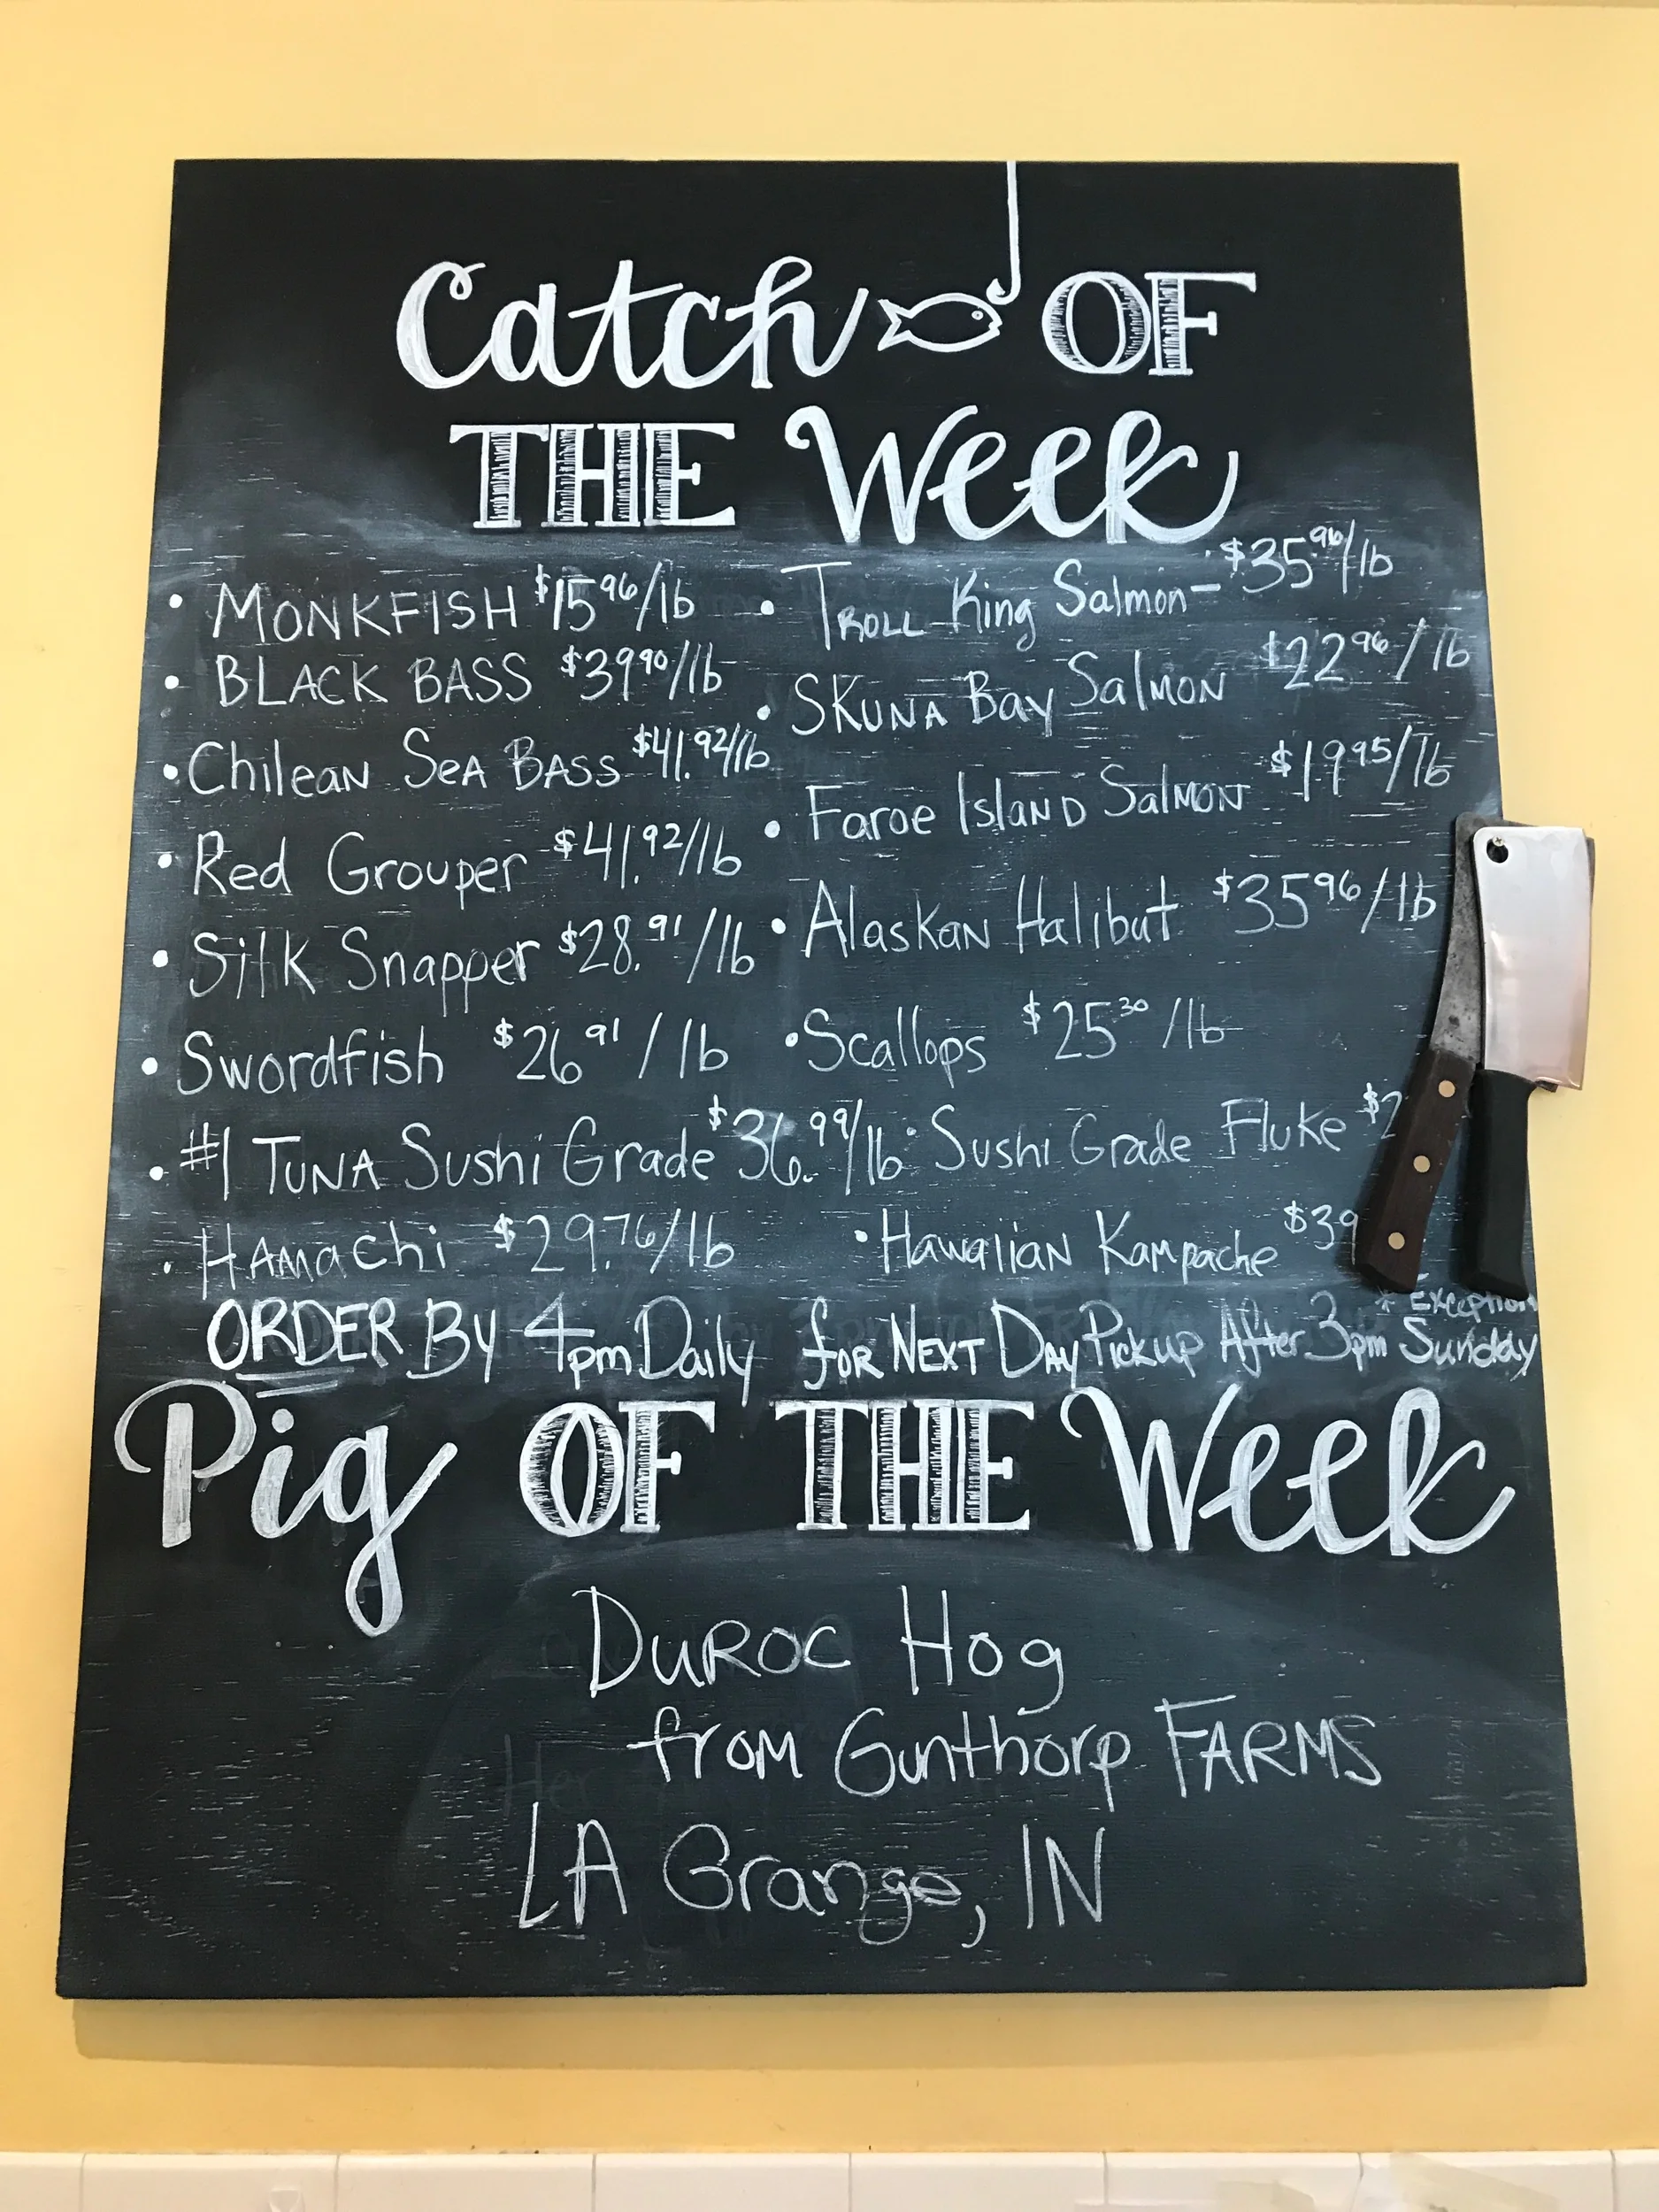 Catch OF
THE Week
• MONKFISH $15 96/lb
• BLACK BASS $39 90/lb
• Chilean Sea Bass $41.92/lb
• Red Grouper $41.92/lb
• Silk Snapper $28.91/lb
• Swordfish $26 91/lb
• #1 TUNA Sushi Grade $36.99/lb
• HAMAChi $29.76/lb
• TROLL King Salmon - $35 96/lb
• SKUNA Bay Salmon $22 96/lb
• Faroe Island Salmon $19 95/lb
• Alaskan Halibut $35 96/lb
• Scallops $25 30/lb
• Sushi Grade Fluke $2
• Hawaiian Kampache $39
ORDER By 4pm Daily for NEXT DAY Pickup After 3pm * Exception Sunday
Pig OF THE Week
DUROC Hog
from Gunthorp FARMS
LA Grange, IN